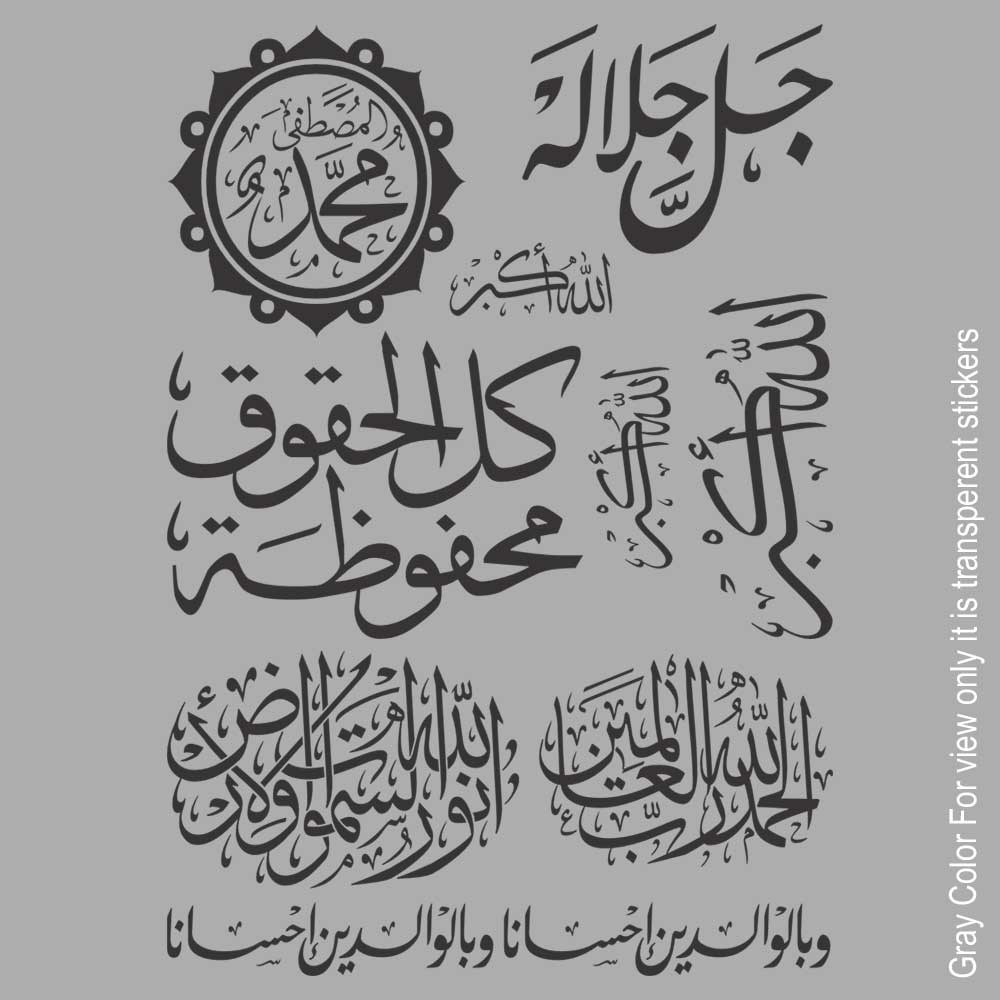 جل جلاله
المصطفى
محمد
الله أكبر
الله أكبر
الله أكبر
كل الحقوق
محفوظة
الحمد لله رب العالمين
الله نور السموات والأرض
وبالوالدين إحسانا وبالوالدين إحسانا
Gray Color For view only it is transperent stickers